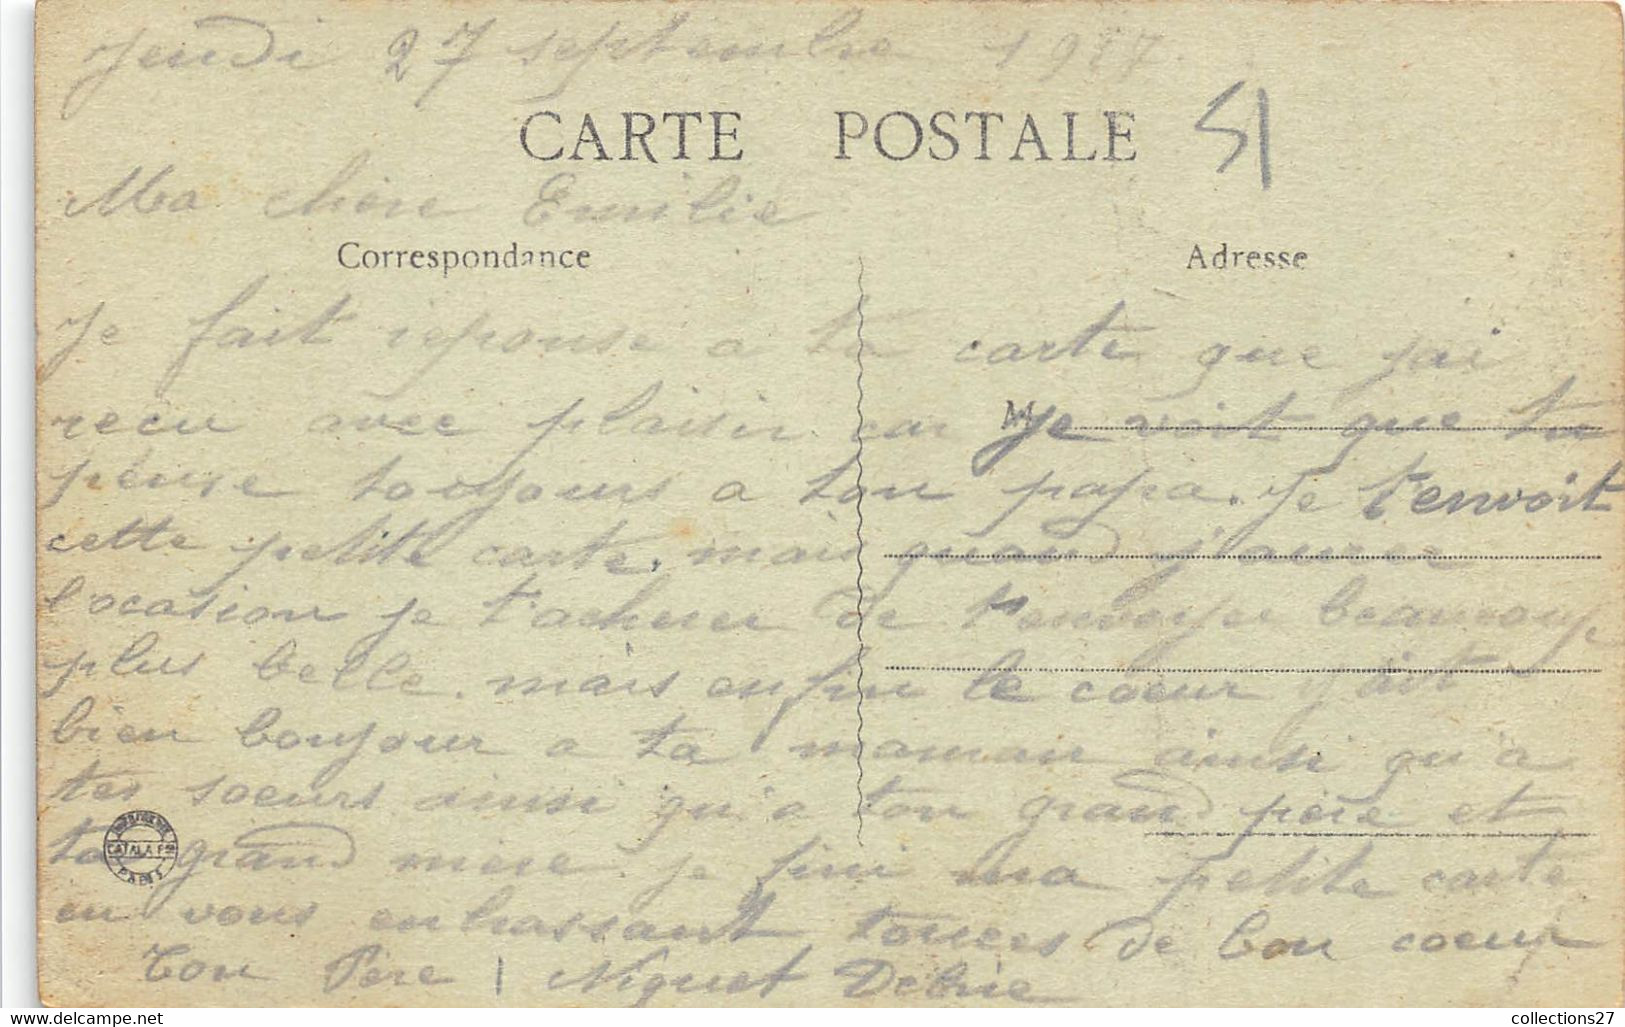 Jeudi 27 septembre 1917.
CARTE POSTALE
51
Ma chère Emilie
Correspondance
Adresse
Je fait reponse a ta carte que jai
recu avec plaisir car je voit que tu
pense toujours a ton papa. Je t'envoit
cette petite carte. mais quand j'aurer
l'ocasion je t'acherer de t'envoyer beaucoup
plus belle. mais enfin le coeur y ait
bien bonjour a ta maman ainsi qu'a
tes soeurs ainsi qu'a ton grand père et
ta grand mere. je fini ma petite carte
en vous enbrassant toutes de bon coeur
Ton Père Niquet Debrie
IMPRIMERIE CATALA Fres PARIS
collections27